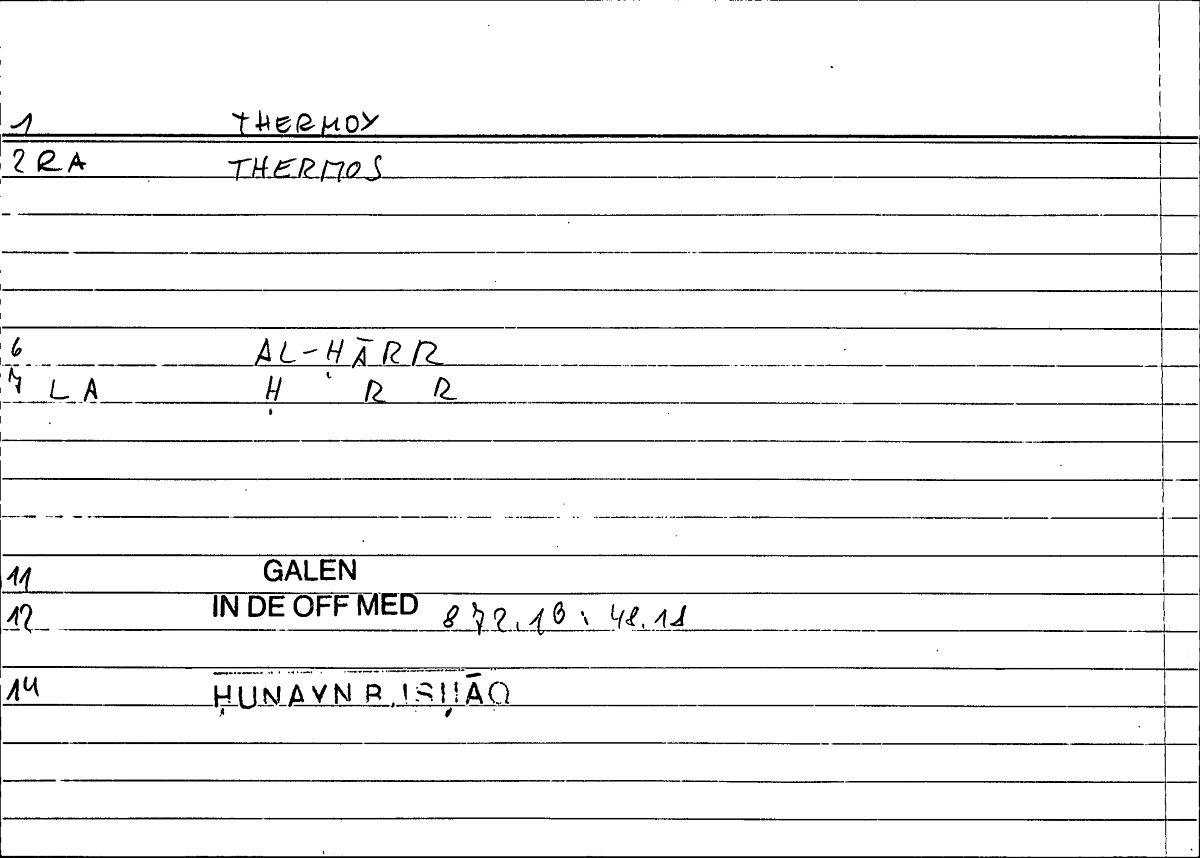 1 THERMOY
2 RA THERMOS
6 AL-ḤĀRR
7 LA Ḥ R R
11 GALEN
12 IN DE OFF MED 872.16 : 48.18
14 ḤUNAYN B. ISḤĀQ